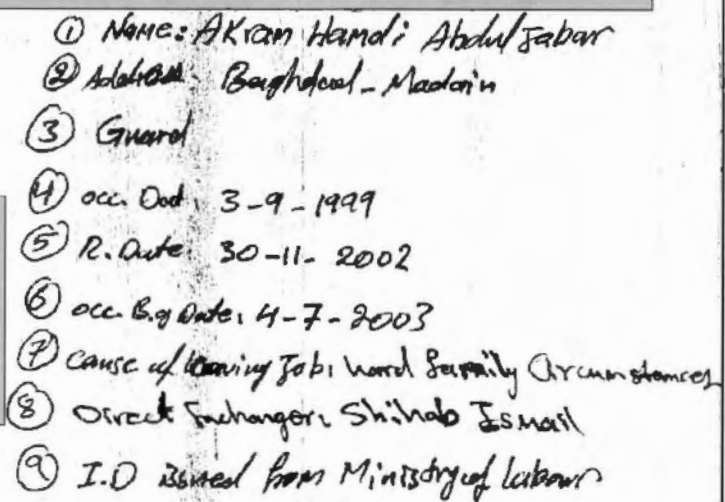 ① Name: Akram Hamdi Abdul Jabar
② Address: Baghdad - Madain
③ Guard
④ occ. Dat: 3-9-1999
⑤ R. Date: 30-11-2002
⑥ occ. B.g Date: 4-7-2003
⑦ cause of leaving Job: hard family Circumstances
⑧ Direct Shihab Ismail
⑨ I.D issued from Ministry of labour